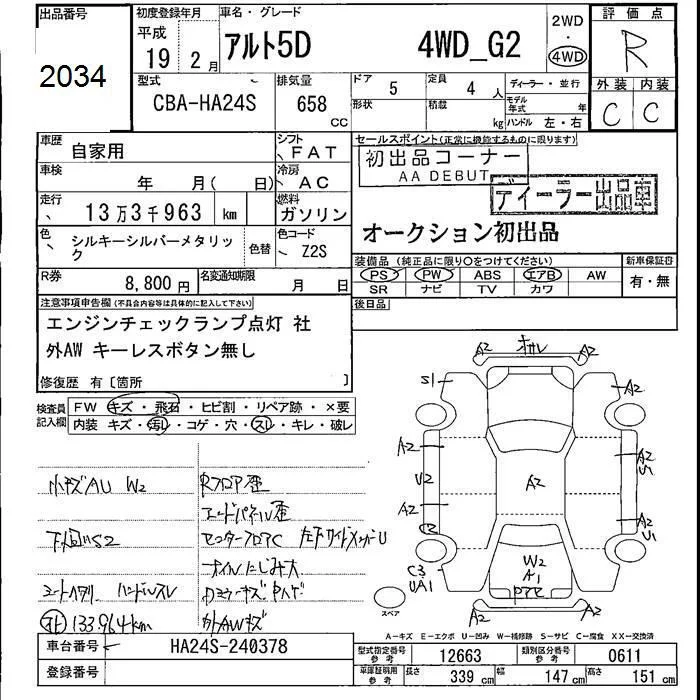 出品番号
2034
初度登録年月
平成
19 2月
車名・グレード
アルト5D 4WD_G2
2WD
・
4WD
評価点
R
外装 内装
C C
型式
CBA-HA24S
排気量
658 CC
ドア 5
形状
定員 4 人
積載 kg
ディーラー・並行
モデル年式 年
ハンドル 左・右
車歴
自家用
シフト
FAT
車検
年 月( 日)
冷房
AC
走行
13万3千963 km
燃料
ガソリン
色
シルキーシルバーメタリック
色替
色コード
Z2S
R券
8,800円
名変通知期限
月 日
セールスポイント(正常に機能するものに限ります)
初出品コーナー
AA DEBUT
ディーラー出品車
オークション初出品
装備品(純正品に限り〇をつけてください)
新車保証書
PS PW ABS エアB AW
SR ナビ TV カワ
有・無
後日品
注意事項申告欄(不具合内容等は具体的に記入して下さい)
エンジンチェックランプ点灯 社
外AW キーレスボタン無し
修復歴 有〔箇所 〕
検査員記入欄
FW キズ・飛石・ヒビ割・リペア跡・×要
内装 キズ・汚れ・コゲ・穴・スレ・キレ・破レ
小キズAU W2
Rフロア歪
エンドパネル歪
下回りS2
センターフロアC 左下サイドメンバーU
オイルにじみ大
シートヘタリ ハンドルスレ
133964km
外AWキズ
A2 オカレ A2
S1 A2
A2 A2
U2 U1
A2 A2
A2 U1
C2
C3
UA1
W2
A1
スペア
A2 A2
A-キズ E-エクボ U-凹み W-補修跡 S-サビ C-腐食 XX-交換済
車台番号
HA24S-240378
登録番号
型式指定番号 参考 12663
類別区分番号 参考 0611
車庫証明用 参考
長さ 339 cm
幅 147 cm
高さ 151 cm